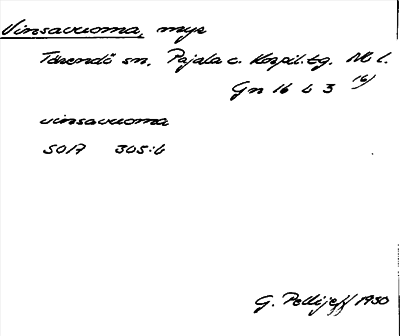 Vinsavuoma, myr
Tärendö sn. Pajala o. Korpil. tg. Nb l.
Gn 16 b 3 16)
vinsavuoma
SOA 305:6
G. Pellijeff 1980